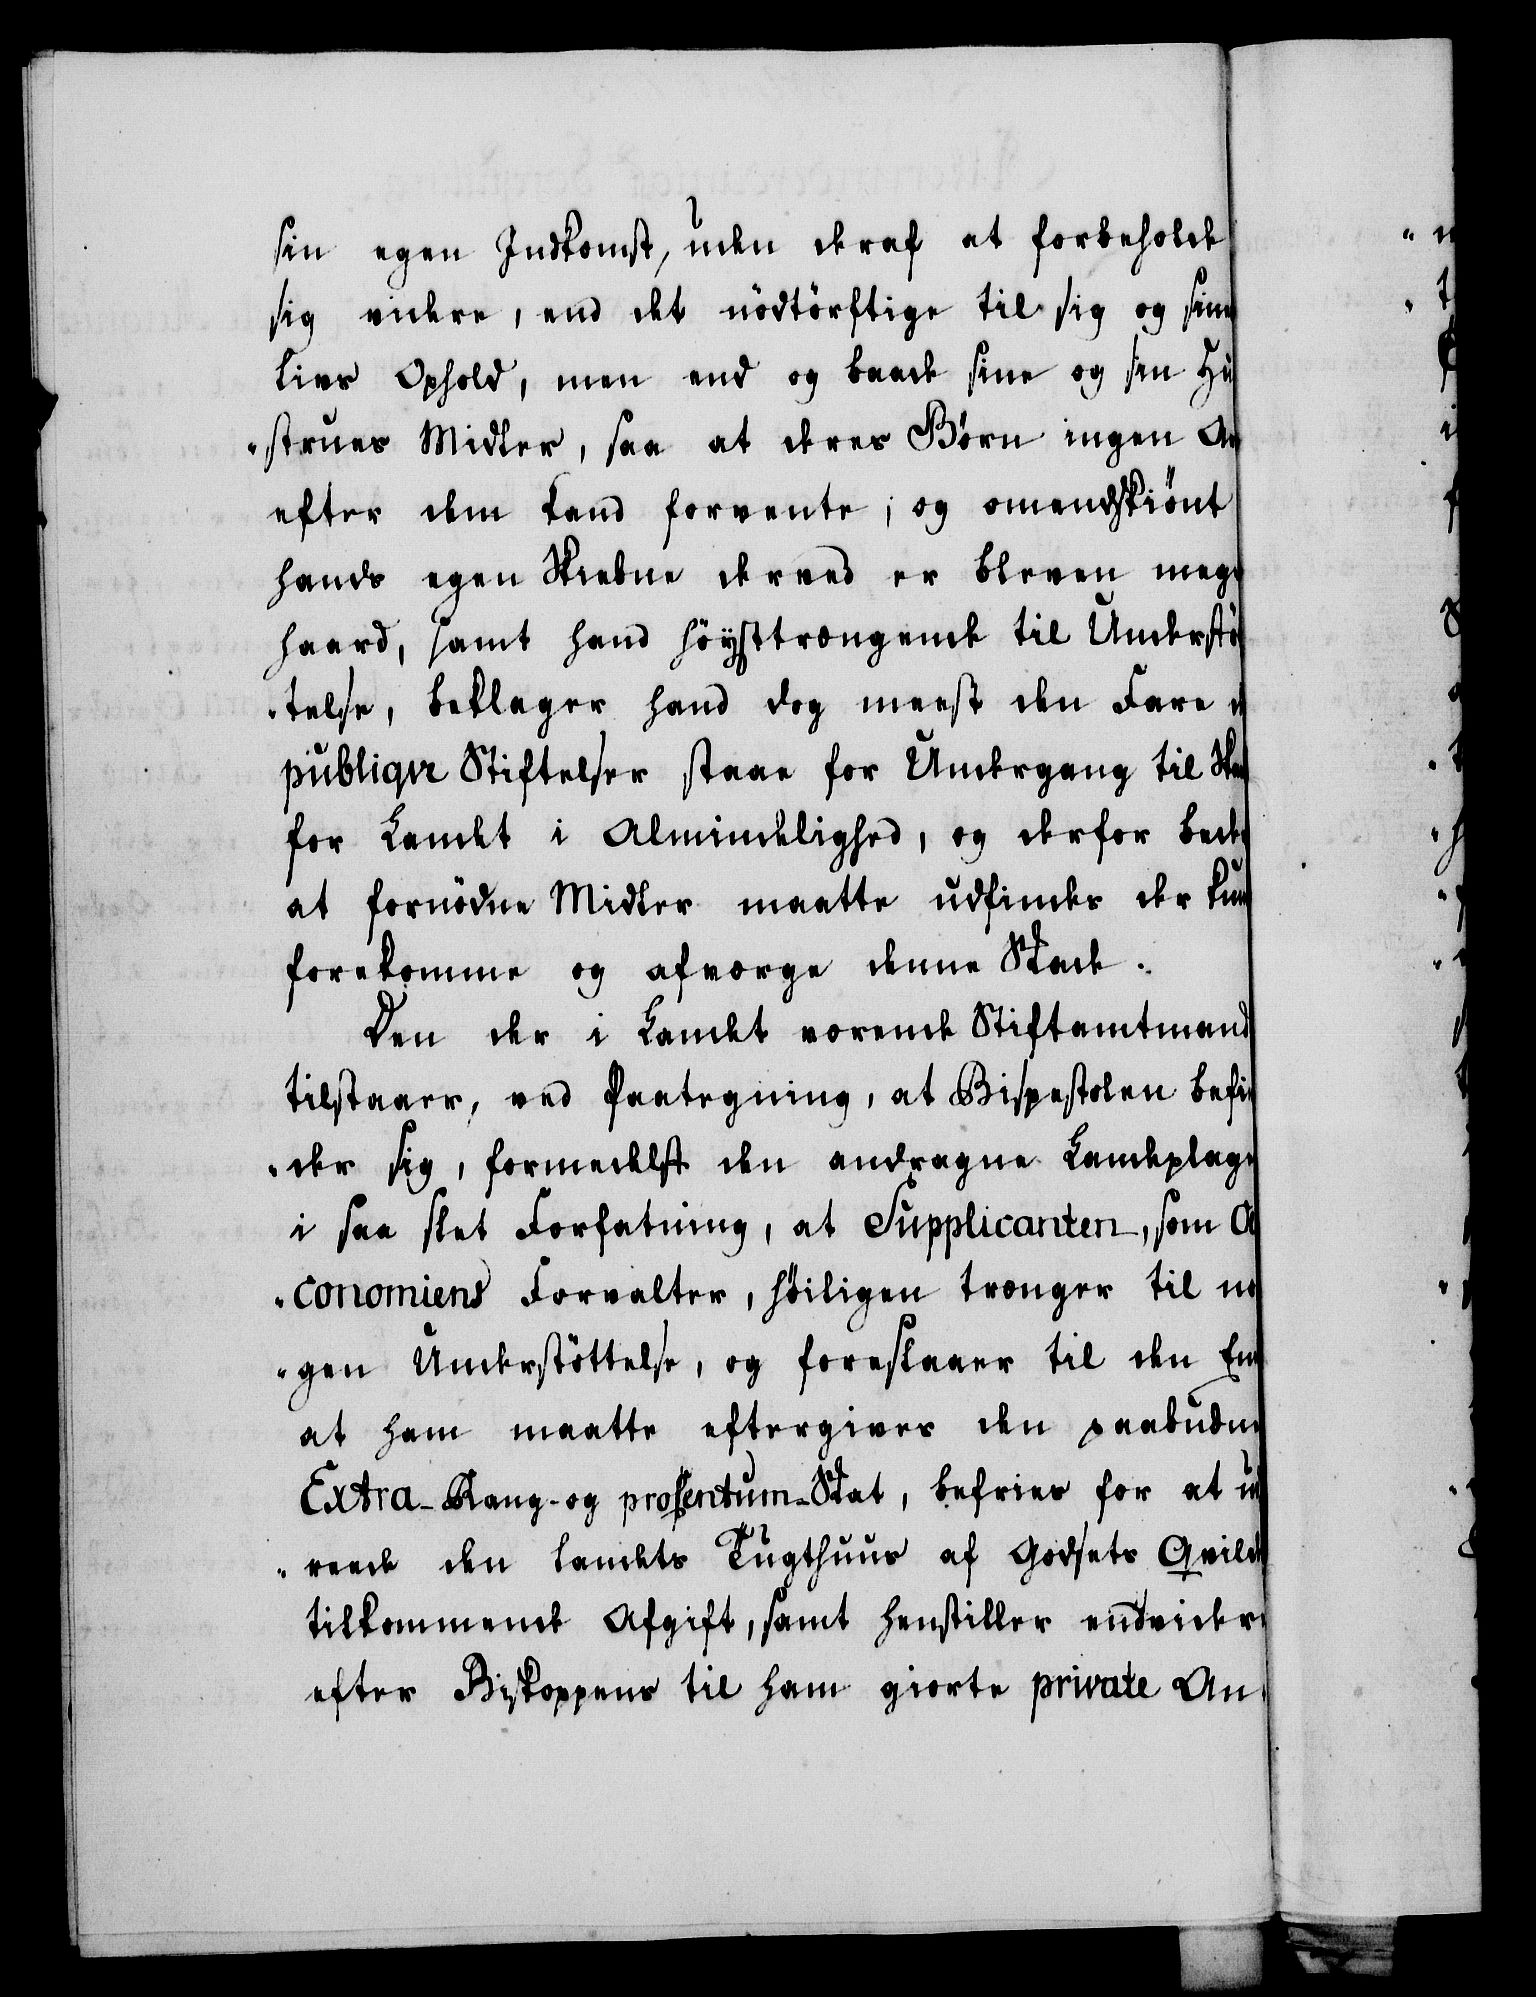 sin egen Indkomst, uden deraf at forbeholde
sig videre, end det nödtörftige til sig og sine
Livs Ophold, men end og baade sine og sin Hu
"strues Midler, saa at deres Børn ingen Ar
efter dem kand forvente; og omendskiönt
hands egen Skiebne derved er bleven mege
haard, samt hand höysttrængende til Understö
"telse, beklager hand dog meest den Fare d
publiqve Stiftelser staae for Undergang til Ska
for Landet i Almindelighed, og derfor beder
at fornödne Midler maatte udfindes der kun
forekomme og afværge denne Skade.
Den der i Landet værende Stiftamtmand
tilstaaer, ved Paategning, at Bispestolen befin
"der sig, formedelst den andragne Landeplage
i saa slet Forfatning, at Supplicanten, som O
"conomiens Forvalter, höiligen trænger til no
"gen Understöttelse, og foreslaaer til den End
at ham maatte eftergives den paabudne
Extra-Rang- og procentum-Skat, befries for at ud
"reede den landets Tugthuus af Godsets Qvilde
tilkommende Afgift, samt henstiller endvidere
efter Biskoppens til ham giorte private An